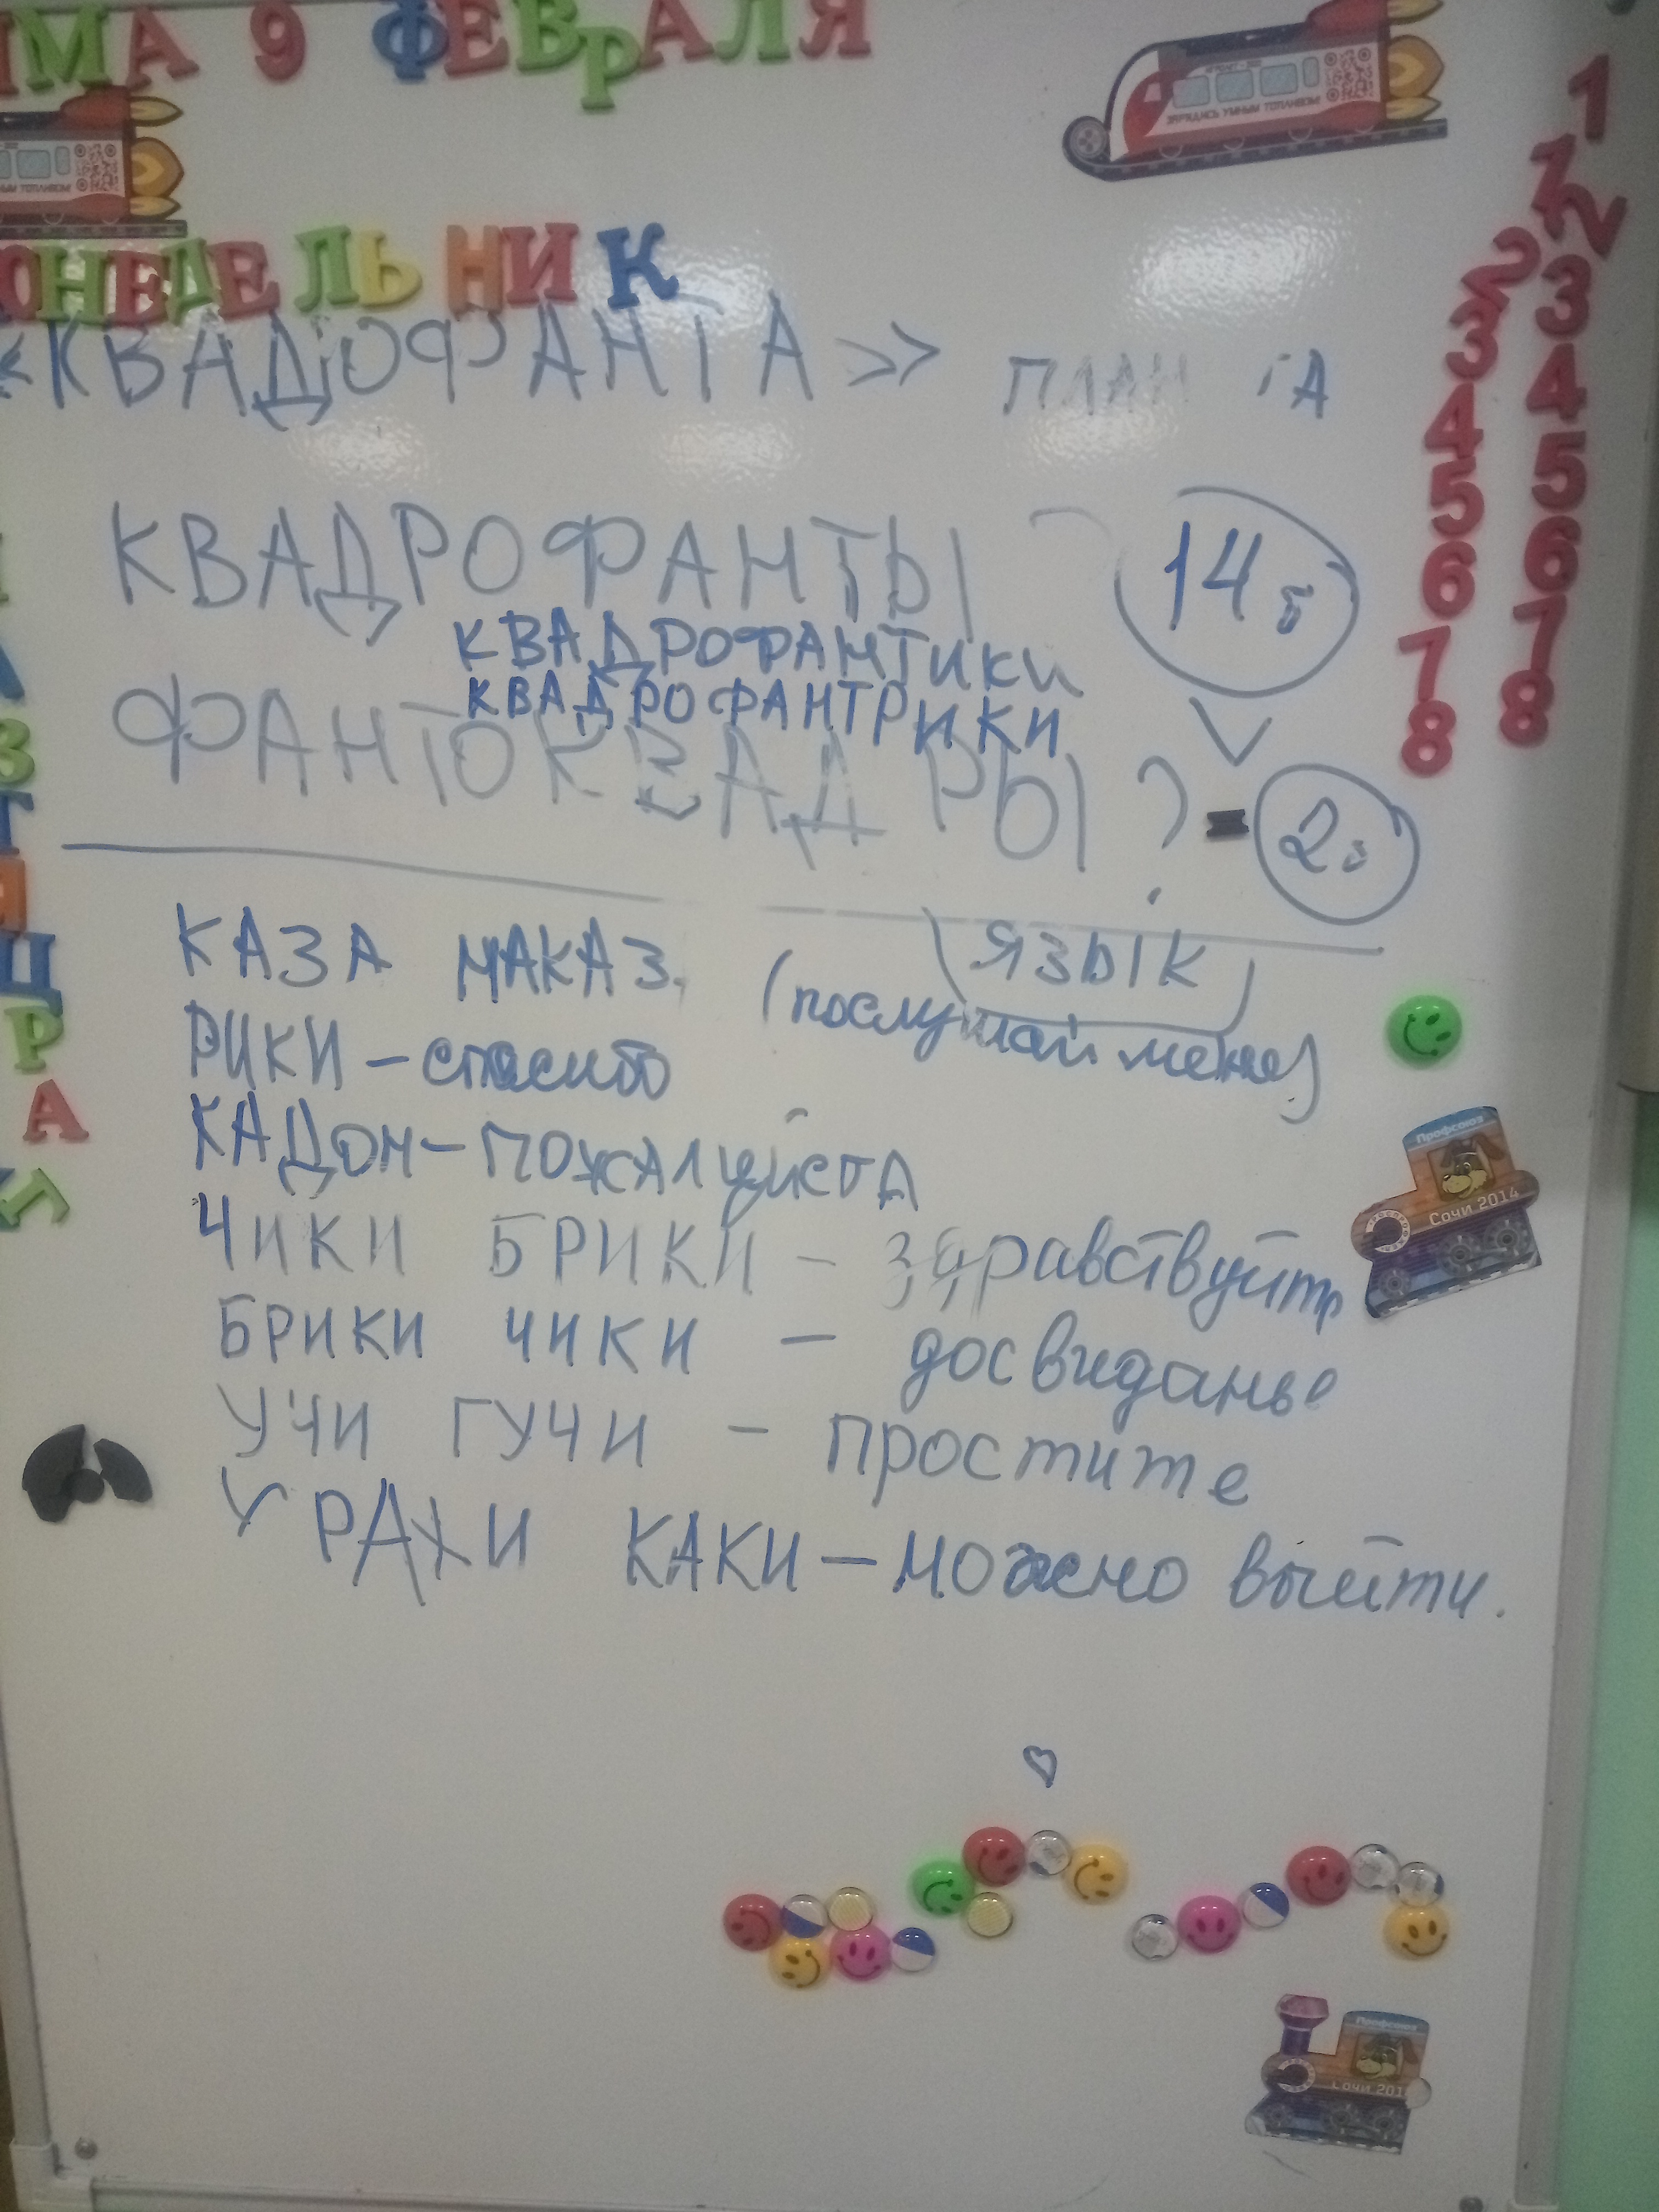 МА 9 ФЕВРАЛЯ
ЗАРЯДИСЬ УМНЫМ ТОПЛИВОМ!
ОНЕДЕЛЬНИК
«КВАДРОФАНТА» ПЛАН ТА
КВАДРОФАНТЫ 14 б
КВАДРОФАНТИКИ
КВАДРОФАНТРИКИ
ФАНТОКВАДРЫ ? - 2
ЯЗЫК
КАЗА МАКАЗ. (послушай меня)
РИКИ – спасибо
КАДОН – ПОЖАЛУЙСТА
ЧИКИ БРИКИ – здравствуйте
БРИКИ ЧИКИ – досвиданье
УЧИ ГУЧИ – простите
УРАХИ КАКИ – можно выйти.
1
1 2
2 3
3 4
4 5
5 6
6 7
7 8
8
А
З
Т
Я
Ц
Р
А
Профсоюз
Сочи 2014
Профсоюз
Сочи 201